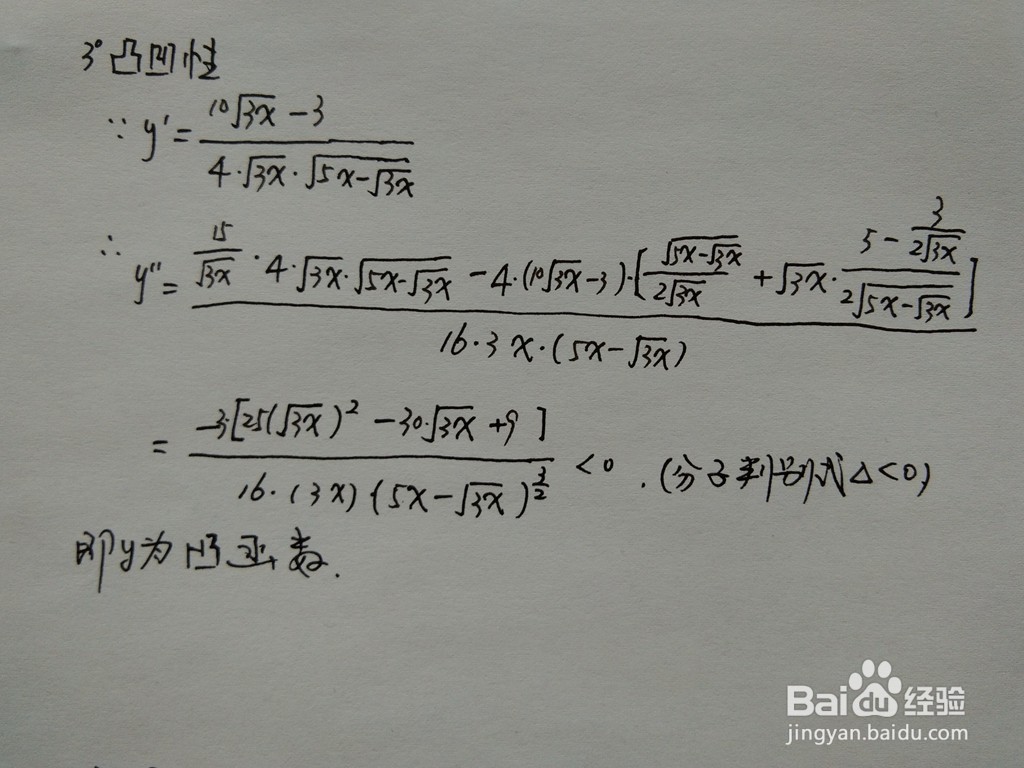 3° 凸凹性
∵ y' = (10√(3x) − 3) / (4·√(3x)·√(5x−√(3x)))
∴ y'' = (15/√(3x) · 4·√(3x)·√(5x−√(3x)) − 4·(10√(3x)−3)·[√(5x−√(3x))/(2√(3x)) + √(3x)·(5 − 3/(2√(3x)))/(2√(5x−√(3x)))]) / (16·3x·(5x−√(3x)))
= −3[25(√(3x))² − 30√(3x) + 9] / (16·(3x)(5x−√(3x))^(3/2)) < 0 . (分子判别式△<0)
即y为 函数.
Baidu经验
jingyan.baidu.com